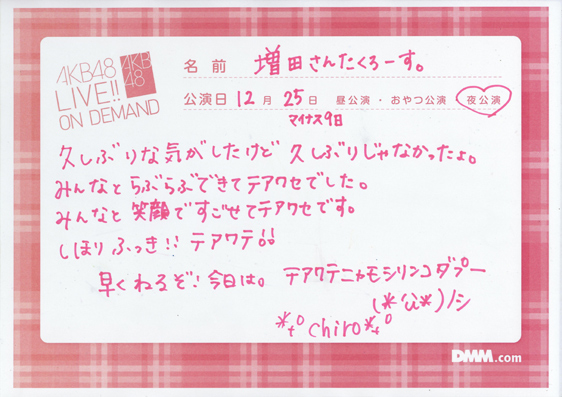 AKB48
LIVE!!
ON DEMAND
AKB
48
名前 増田さんたくろーす。
公演日 12月 25日 昼公演・おやつ公演 夜公演
マイナス9日
久しぶりな気がしたけど 久しぶりじゃなかったょ。
みんなとらぶらぶできてテアワセでした。
みんなと笑顔ですごせてテアワセです。
しほりふっき!! テアワテ!!
早くねるぞ! 今日は。 テアワテニャモシリンコダプー
(*'ü'*)ノシ
*+°chiro*+°
DMM.com